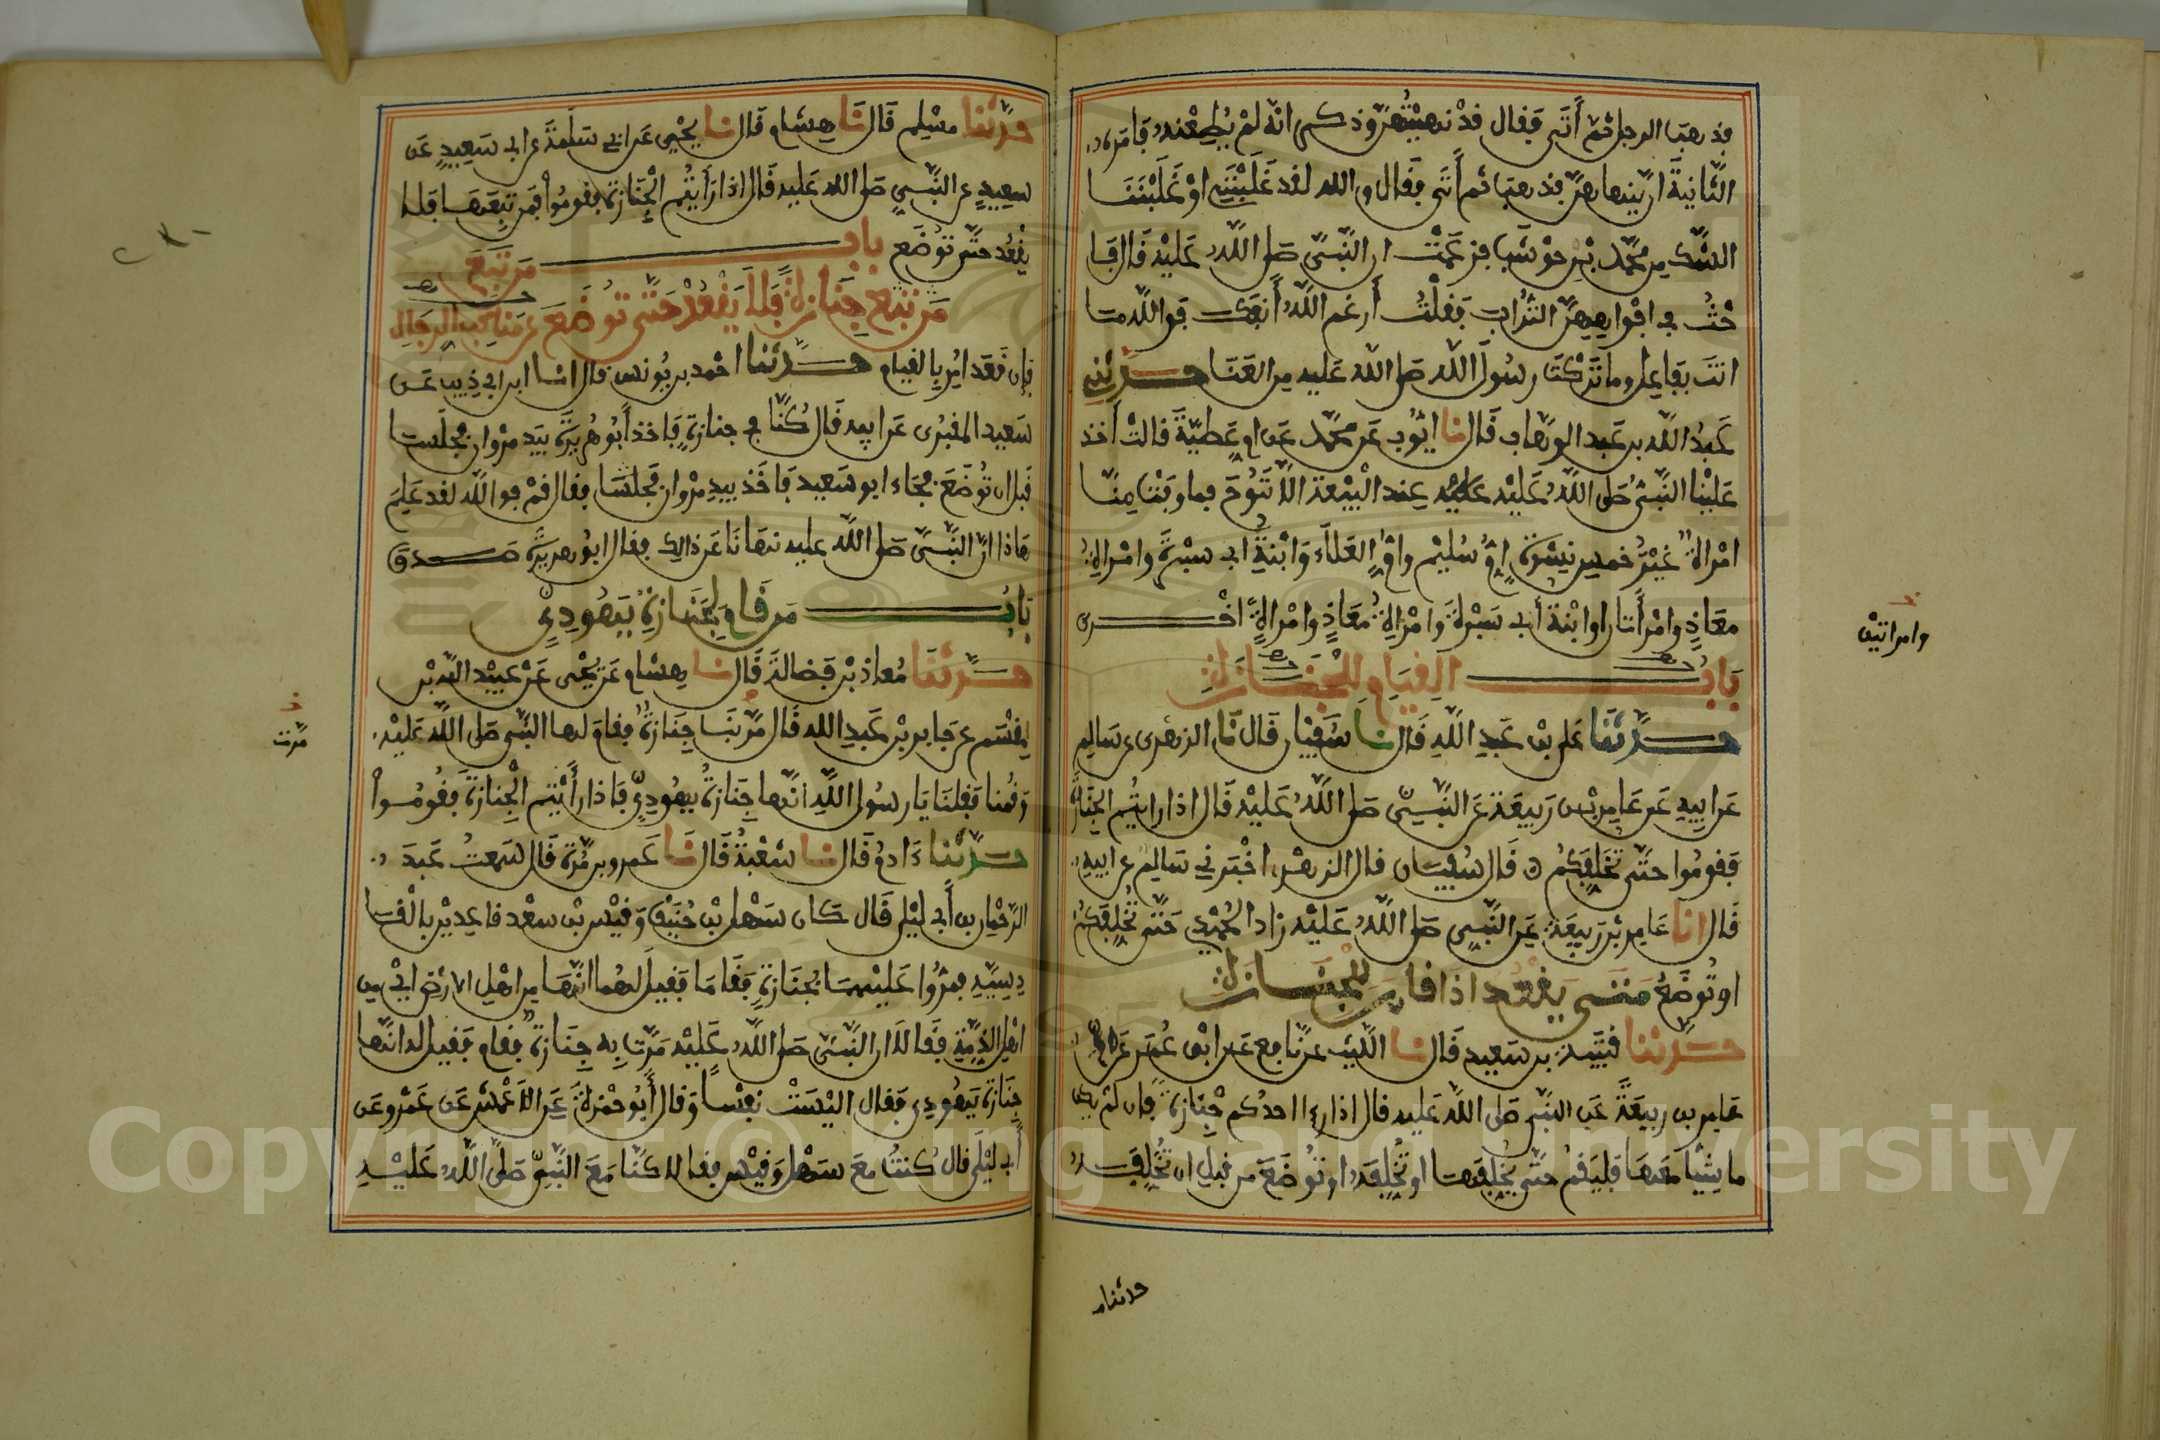 فذهب الرجل ثم أتى فقال قد نهيتهن وذكر انه لم يطعنه فامره
الثانية ان ينهاهن فذهب ثم أتى فقال والله لقد غلبنني او غلبننا
الشك من محمد بن حوشب فزعمت ان النبي صلى الله عليه قال فا
حث في افواههن التراب فقلت أرغم الله أنفك فوالله ما
انت بفاعل وما تركت رسول الله صلى الله عليه من العنا حدثني
عبد الله بن عبد الوهاب قال نا ايوب عن محمد عن ام عطية قالت أخذ
علينا النبي صلى الله عليه عند البيعة الا ننوح فما وفت منا
امراة غير خمس نسوة ام سليم وام العلاء وابنة ابي سبرة وامراة
معاذ وامرأتان او ابنة أبي سبرة وامراة معاذ وامراة اخرى
باب القيام للجنازة
حدثنا علي بن عبد الله قال نا سفيان قال نا الزهري عن سالم
عن ابيه عن عامر بن ربيعة عن النبي صلى الله عليه قال اذا رايتم الجنازة
فقوموا حتى تخلفكم قال سفيان قال الزهري اخبرني سالم عن ابيه
قال انا عامر بن ربيعة عن النبي صلى الله عليه زاد الحميدي حتى تخلفكم
او توضع متى يقعد اذا قام للجنازة
حدثنا قتيبة بن سعيد قال نا الليث عن نافع عن ابن عمر عن
عامر بن ربيعة عن النبي صلى الله عليه قال اذا راى احدكم جنازة فان لم يكن
ماشيا معها فليقم حتى يخلفها او تخلفه او توضع من قبل ان تخلفه
وامراتين
حدثنا م
حدثنا مسلم قال نا هشام قال نا يحيى عن ابي سلمة عن ابي سعيد عن
سعيد عن النبي صلى الله عليه قال اذا رأيتم الجنازة فقوموا فمن تبعها فلا
يقعد حتى توضع باب من تبع
من تبع جنازة فلا يقعد حتى توضع عن مناكب الرجال
فإن قعد امر بالقيام حدثنا احمد بن يونس قال انا ابن ابي ذيب عن
سعيد المقبري عن ابيه قال كنا في جنازة فاخذ أبو هريرة بيد مروان فجلسا
قبل ان توضع فجاء ابو سعيد فاخذ بيد مروان فجلسا فقال قم فوالله لقد علم
هاذا ان النبي صلى الله عليه نهانا عن ذالك فقال ابو هريرة صدق
باب من قام لجنازة يهودي
حدثنا معاذ بن فضالة قال نا هشام عن يحيى عن عبيد الله بن
مقسم عن جابر بن عبد الله قال مر بنا جنازة فقام لها النبي صلى الله عليه
وقمنا فقلنا يا رسول الله انها جنازة يهودي فاذا رأيتم الجنازة فقوموا
حدثنا ءادم قال نا شعبة قال نا عمرو بن مرة قال سمعت عبد
الرحمن بن أبي ليلى قال كان سهل بن حنيف وقيس بن سعد قاعدين بالقا
دسية فمروا عليهما بجنازة فقاما فقيل لهما انها من اهل الارض اي من
اهل الذمة فقالا ان النبي صلى الله عليه مرت به جنازة فقام فقيل له انها
جنازة يهودي فقال اليست نفسا وقال أبو حمزة عن الاعمش عن عمرو عن
أبي ليلى قال كنت مع سهل وقيس فقالا كنا مع النبي صلى الله عليه
مرت
Copyright © King Saud University